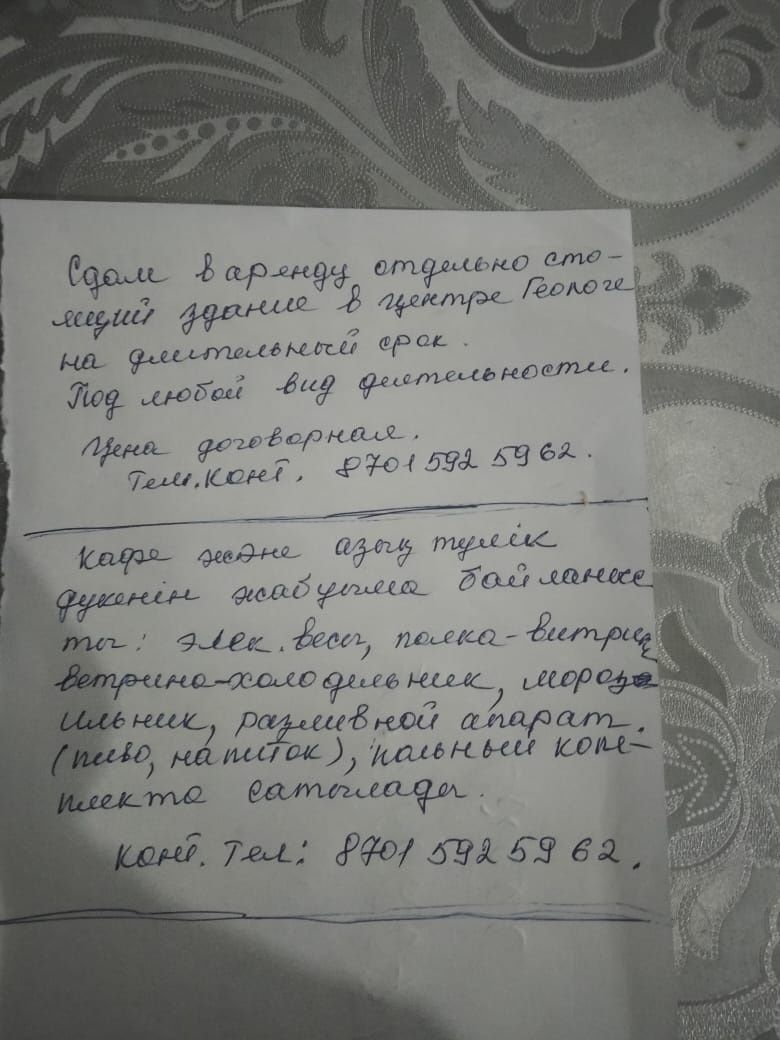 Сдам в аренду отдельно сто-
ящий здание в центре Геологе
на длительный срок.
Под любой вид деятельности.
Цена договорная.
Тел.конт. 8701 592 59 62.
кафе және азық түлік
дукенін жабуыма байланыс
ты: элек. весы, полка-витрин,
ветрина-холодельник, мороз
ильник, разливной апарат.
(пиво, напиток), польный комп-
лекта сатылады.
конт. Тел: 8701 592 59 62.